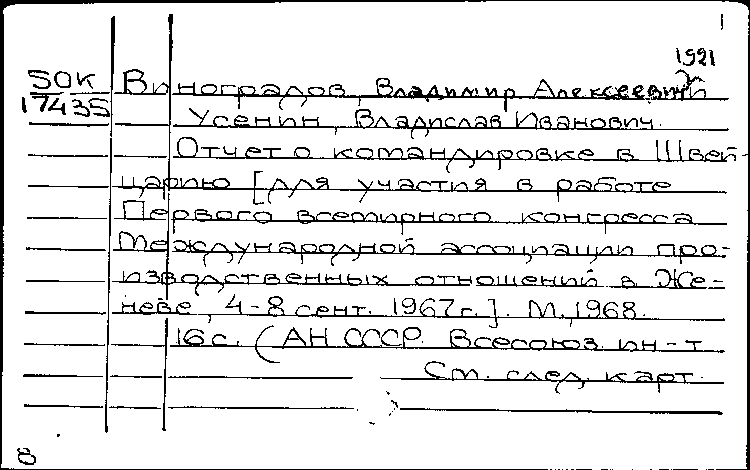 1
1921
50К Виноградов, Владимир Алексеевич
17435 Усенин, Владислав Иванович.
Отчет о командировке в Швей-
царию [для участия в работе
Первого всемирного конгресса
Международной ассоциации про-
изводственных отношений в Же-
неве, 4-8 сент. 1967г.]. М., 1968.
16 с. (АН СССР. Всесоюз. ин-т
См. след. карт.
8